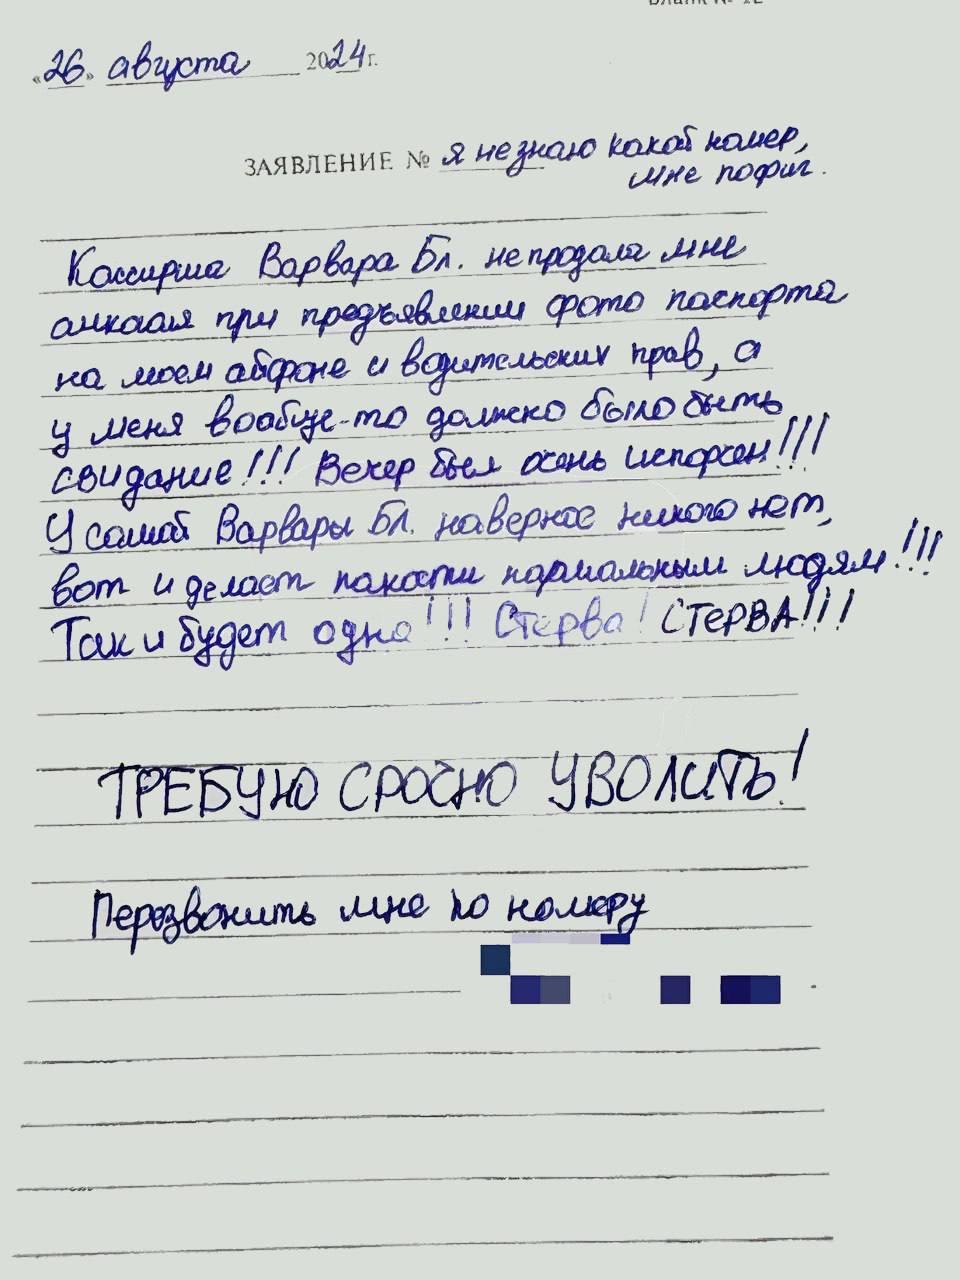 «26» августа 2024 г.
ЗАЯВЛЕНИЕ № я не знаю какой номер,
мне пофиг.
Кассирша Варвара Бл. не продала мне
алкааля при предъявлении фото паспорта
на моем айфоне и водительских прав, а
у меня вообще-то должно было быть
свидание!!! Вечер был очень испорчен!!!
У самой Варвары Бл. наверное никого нет,
вот и делает пакости нармальным людям!!!
Так и будет одна!!! Стерва! СТЕРВА!!!
ТРЕБУЮ СРОЧНО УВОЛИТЬ!
Перезвонить мне по номеру